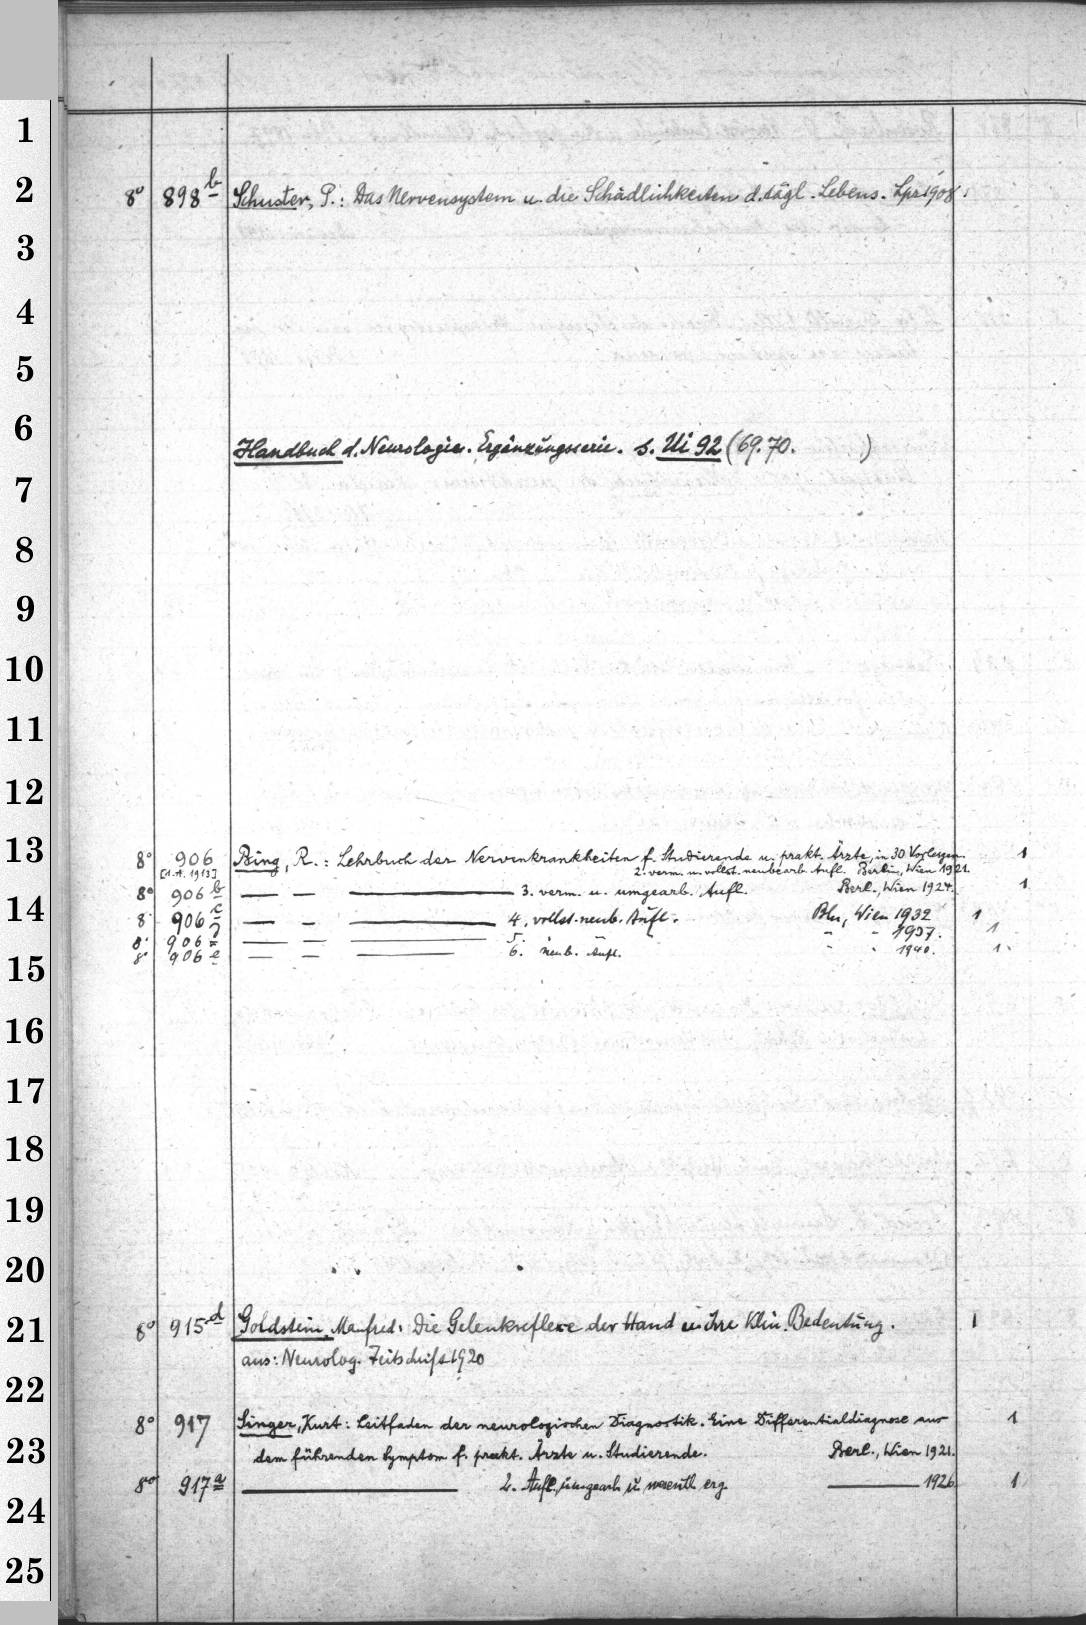 1
2
3
4
5
6
7
8
9
10
11
12
13
14
15
16
17
18
19
20
21
22
23
24
25
8° 898 b Schuster, P.: Das Nervensystem u. die Schädlichkeiten d. tägl. Lebens. Lpz. 1908.
Handbuch d. Neurologie. Ergänzungsserie. s. Ui 92 (69.70. )
8° 906 Bing, R.: Lehrbuch der Nervenkrankheiten f. Studierende u. prakt. Ärzte, in 30 Vorlesgen. 1
[1.A. 1913] 2. verm. u. vollst. neubearb. Aufl. Berlin, Wien 1921.
8° 906 b — — — 3. verm. u. umgearb. Aufl. Berl., Wien 1924. 1
8° 906 c — — — 4. vollst. neub. Aufl. Bln, Wien 1932 1
8° 906 d — — — 5. " " 1937. 1
8° 906 e — — — 6. neub. Aufl. " " 1940. 1.
8° 915 d Goldstein, Manfred: Die Gelenkreflexe der Hand u. ihre klin. Bedeutung. 1
aus: Neurolog. Zeitschrift 1920
8° 917 Singer, Kurt: Leitfaden der neurologischen Diagnostik. Eine Differentialdiagnose aus 1
dem führenden Symptom f. prakt. Ärzte u. Studierende. Berl., Wien 1921.
8° 917 a — 2. Aufl. umgearb. u. wesentl. erg. — 1926 1